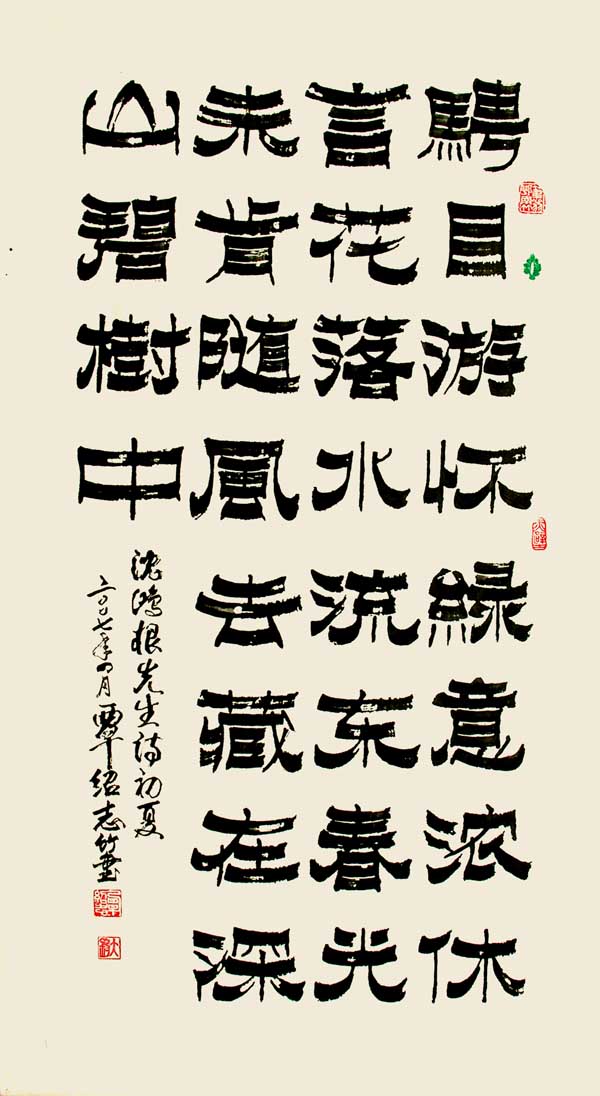 騁目游怀緑意浓休
言花落水流东春光
未肯随風去藏在深
山碧樹中
沈鸿根先生诗初夏
二〇〇七年四月覃绍志竹